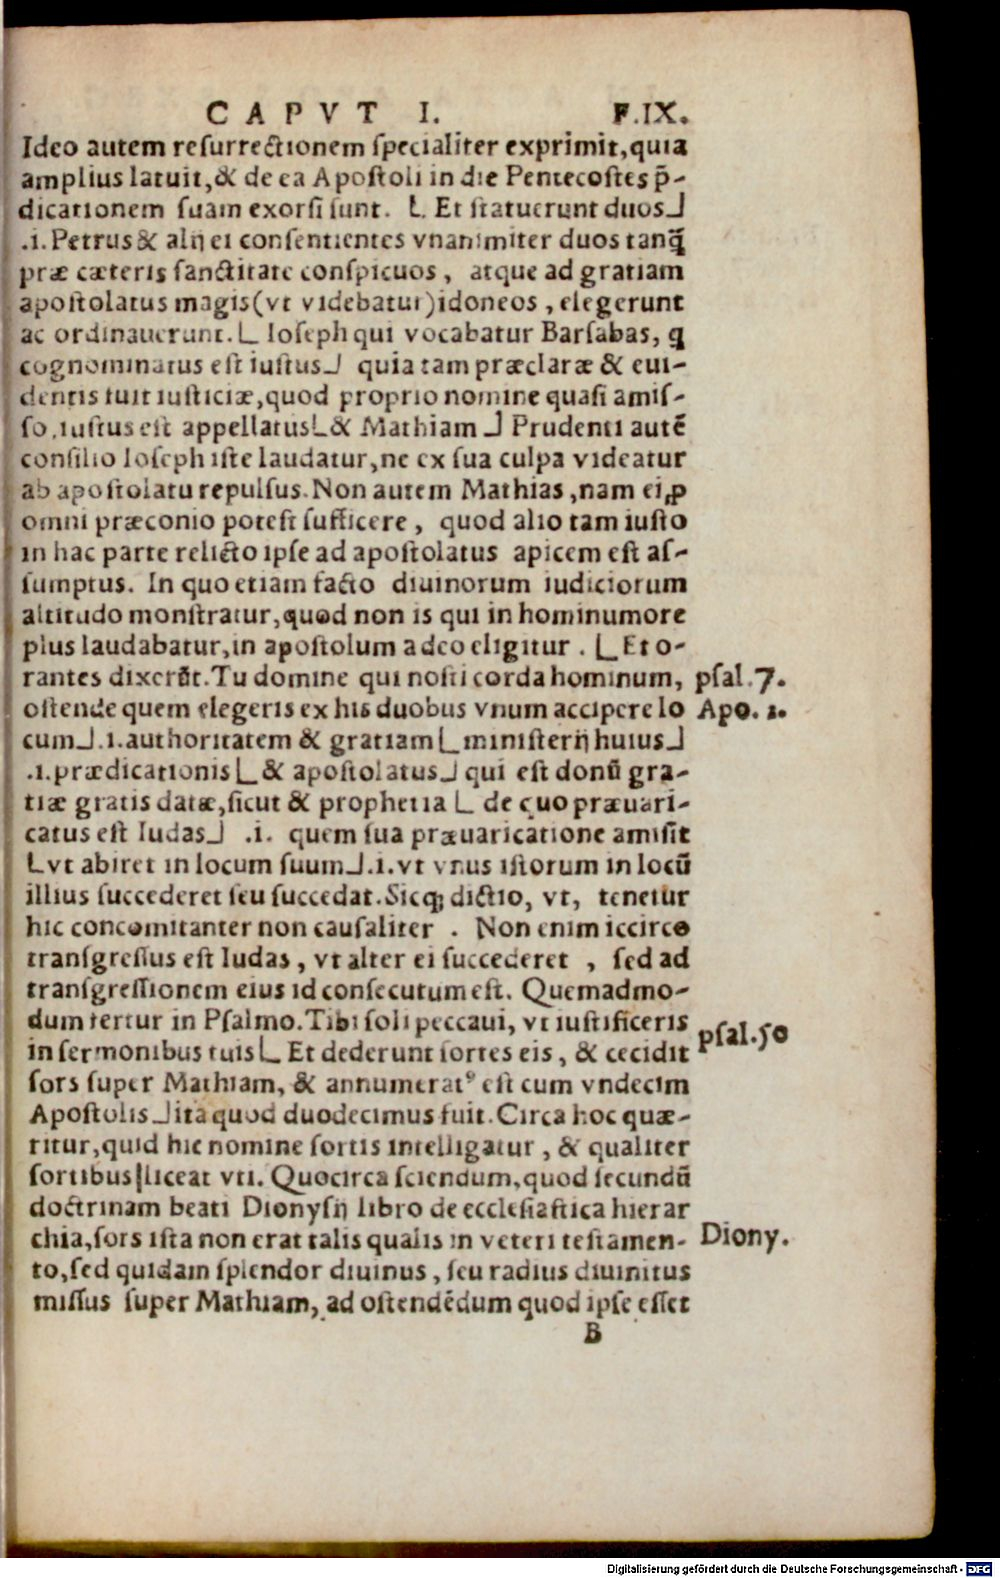 CAPVT I. F.IX.
Ideo autem resurrectionem specialiter exprimit, quia
amplius latuit, & de ea Apostoli in die Pentecostes p̄-
dicationem suam exorsi sunt. L. Et statuerunt duos⅃
.i. Petrus & alij ei consentientes vnanimiter duos tanq̃
præ cæteris sanctitate conspicuos, atque ad gratiam
apostolatus magis (vt videbatur) idoneos, elegerunt
ac ordinauerunt. L Ioseph qui vocabatur Barsabas, q
cognominatus est iustus⅃ quia tam præclaræ & eui-
dentis fuit iusticiæ, quod proprio nomine quasi amis-
so, iustus est appellatus L & Mathiam ⅃ Prudenti autē
consilio Ioseph iste laudatur, ne ex sua culpa videatur
ab apostolatu repulsus. Non autem Mathias, nam ei, ꝓ
omni præconio potest sufficere, quod alio tam iusto
in hac parte relicto ipse ad apostolatus apicem est as-
sumptus. In quo etiam facto diuinorum iudiciorum
altitudo monstratur, quod non is qui in hominum ore
plus laudabatur, in apostolum a deo eligitur. L Et o-
rantes dixerūt. Tu domine qui nosti corda hominum, psal. 7.
ostende quem elegeris ex his duobus vnum accipere lo Apo. 2.
cum⅃ .i. authoritatem & gratiam L ministerij huius⅃
.i. prædicationis L & apostolatus⅃ qui est donū gra-
tiæ gratis datæ, sicut & prophetia L de quo præuari-
catus est Iudas⅃ .i. quem sua præuaricatione amisit
L vt abiret in locum suum⅃ .i. vt vnus istorum in locū
illius succederet seu succedat. Sicq; dictio, vt, tenetur
hic concomitanter non causaliter. Non enim iccirco
transgressus est Iudas, vt alter ei succederet, sed ad
transgressionem eius id consecutum est. Quemadmo-
dum fertur in Psalmo. Tibi soli peccaui, vt iustificeris psal. 50
in sermonibus tuis L Et dederunt sortes eis, & cecidit
sors super Mathiam, & annumeratꝰ est cum vndecim
Apostolis⅃ ita quod duodecimus fuit. Circa hoc quæ-
ritur, quid hic nomine sortis intelligatur, & qualiter
sortibus liceat vti. Quocirca sciendum, quod secundū
doctrinam beati Dionysij libro de ecclesiastica hierar
chia, sors ista non erat talis qualis in veteri testamen- Diony.
to, sed quidam splendor diuinus, seu radius diuinitus
missus super Mathiam, ad ostendēdum quod ipse esset
B
Digitalisierung gefördert durch die Deutsche Forschungsgemeinschaft - DFG